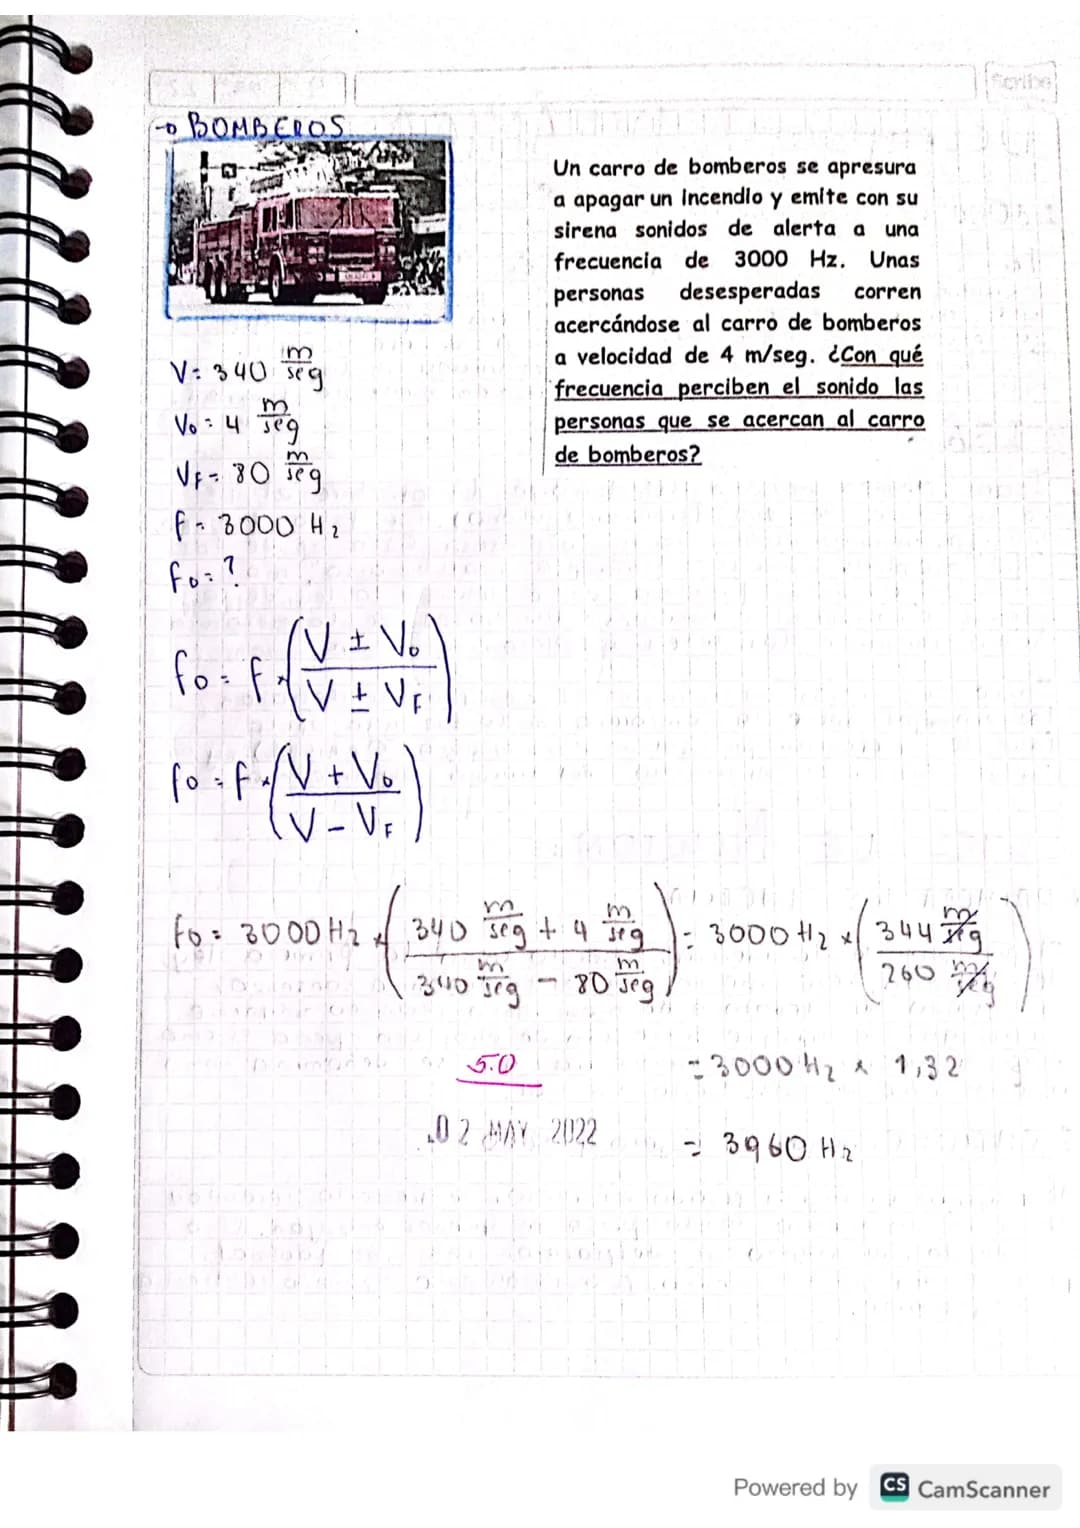 Scribe
→ BOMBEROS
Un carro de bomberos se apresura
a apagar un incendio y emite con su
sirena sonidos de alerta a una
frecuencia de 3000 Hz. Unas
personas desesperadas corren
acercándose al carro de bomberos
a velocidad de 4 m/seg. ¿Con qué
frecuencia perciben el sonido las
personas que se acercan al carro
de bomberos?
V= 340 m/seg
Vo = 4 m/seg
VF = 80 m/seg
f = 3000 Hz
fo = ?
fo = f × (V ± Vo / V ± VF)
fo = f × (V + Vo / V - VF)
fo = 3000 Hz × (340 m/seg + 4 m/seg / 340 m/seg - 80 m/seg) = 3000 Hz × (344 m/seg / 260 m/seg)
5.0
= 3000 Hz × 1,32
02 MAY 2022
= 3960 Hz
Powered by CS CamScanner